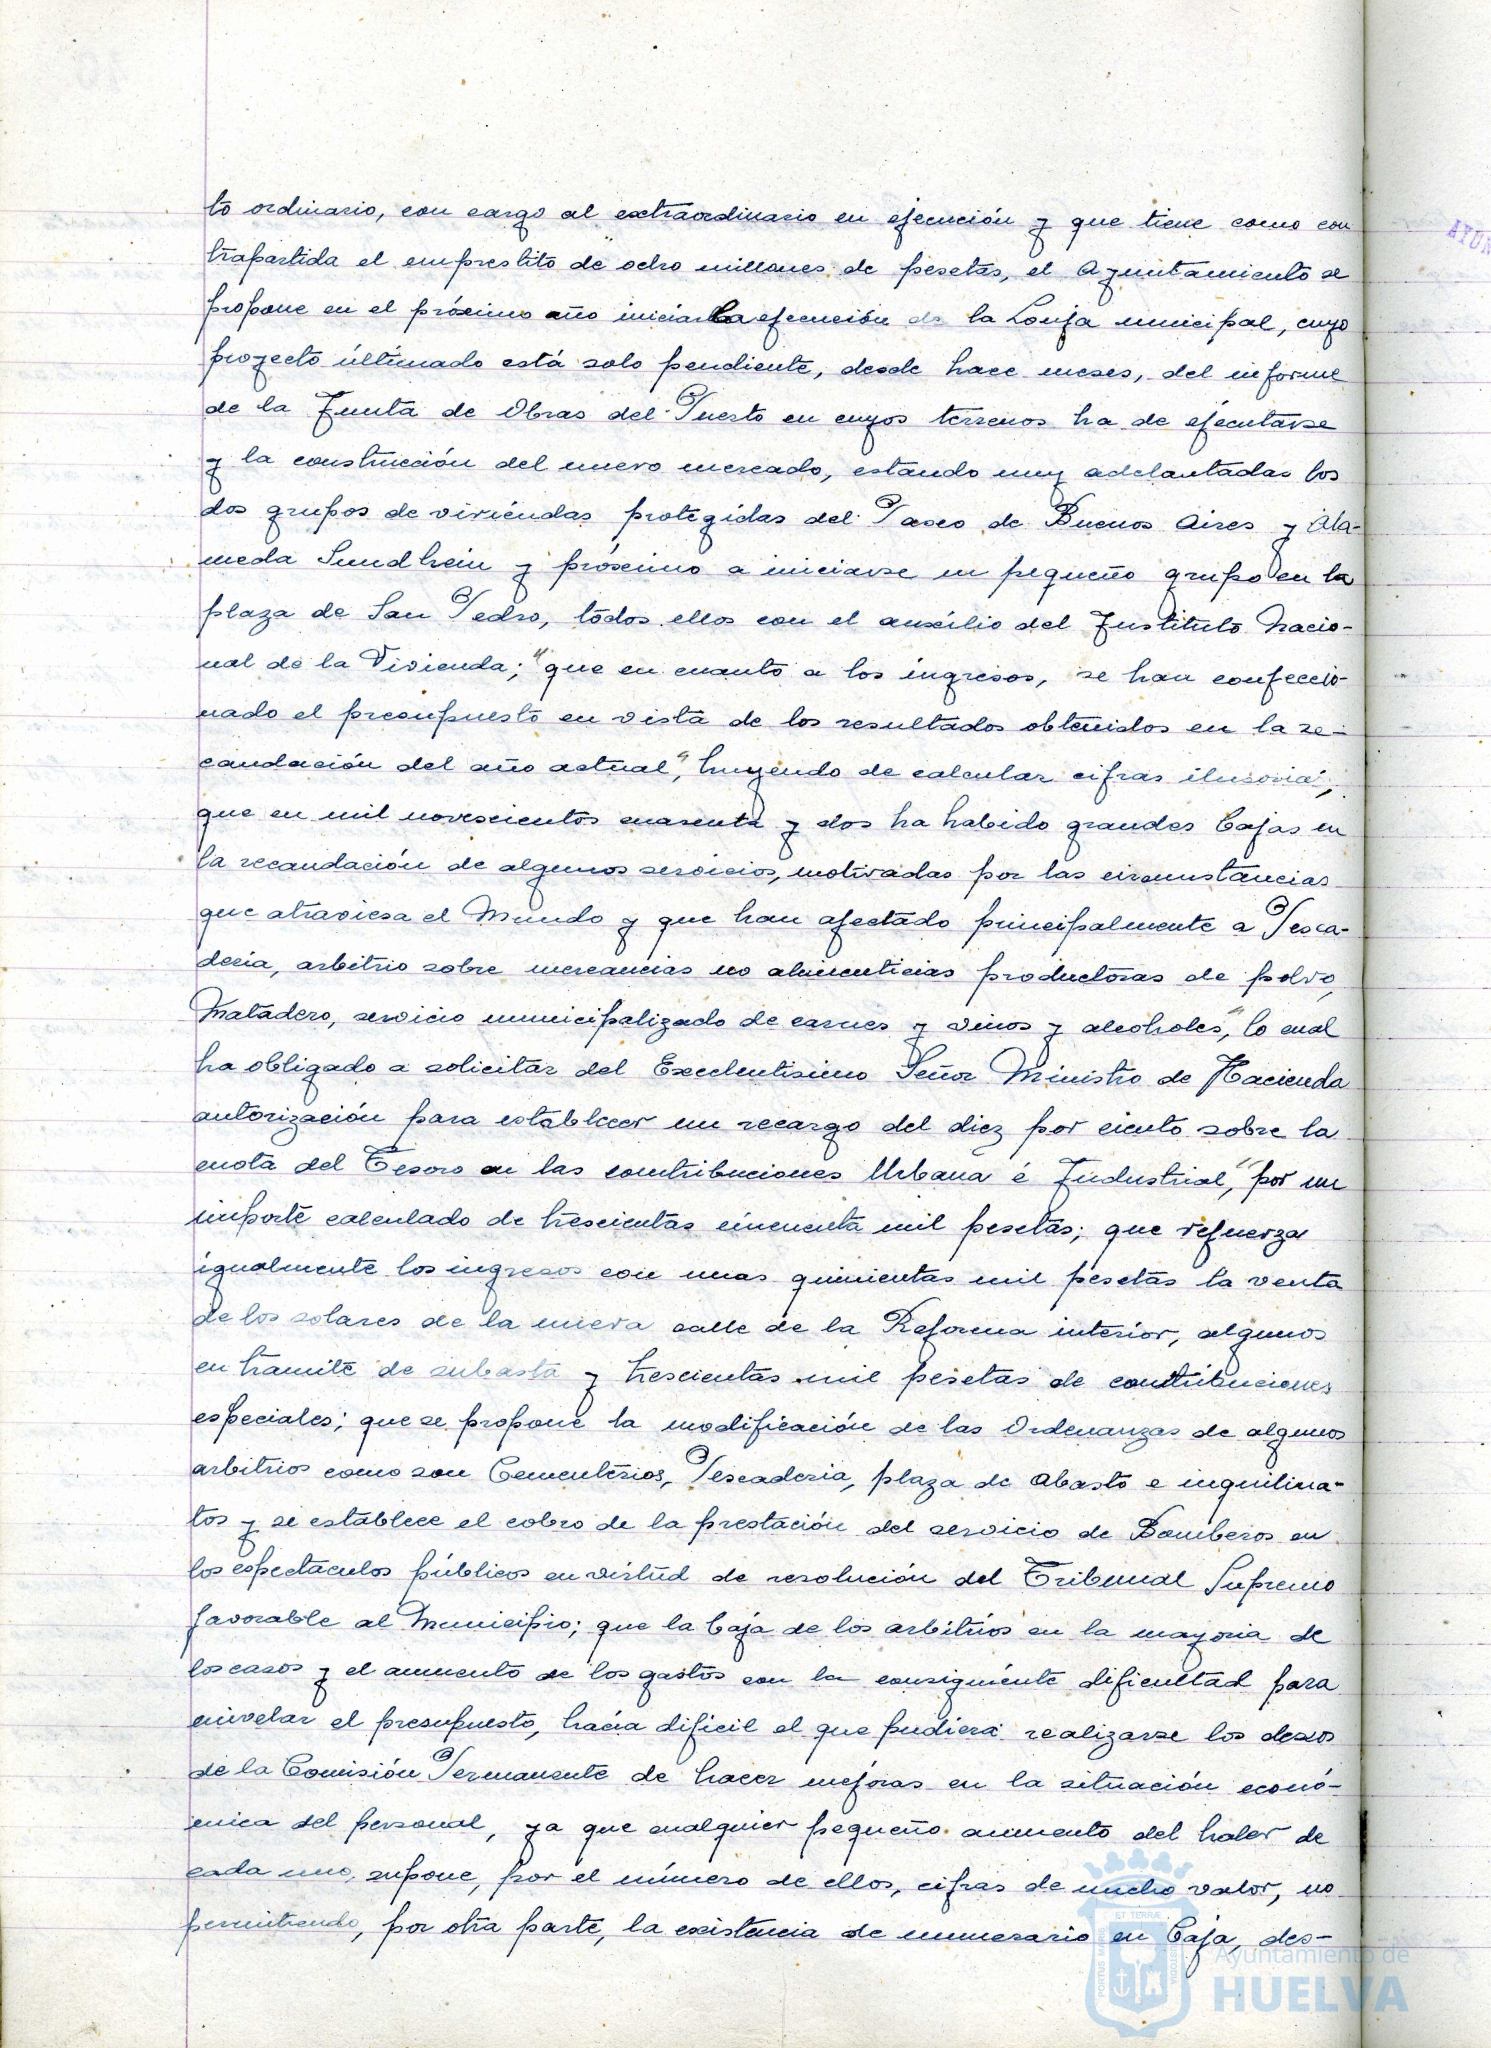 to ordinario, con cargo al extraordinario en ejecución y que tiene como con
trapartida el emprestito de ocho millones de pesetas, el Ayuntamiento se
propone en el próximo año iniciar la ejecución de la Lonja municipal, cuyo
proyecto últimado está solo pendiente, desde hace meses, del informe
de la Junta de Obras del Puerto en cuyos terrenos ha de ejecutarse
y la construcción del nuevo mercado, estando muy adelantadas los
dos grupos de viviendas protegidas del Paseo de Buenos Aires y Ala-
meda Sundhein y próximo a iniciarse un pequeño grupo en la
plaza de San Pedro, todos ellos con el auxilio del Instituto Nacio-
nal de la Vivienda; que en cuanto a los ingresos, se han confeccio-
nado el presupuesto en vista de los resultados obtenidos en la re-
caudación del año actual, huyendo de calcular cifras ilusorias,
que en mil novescientos cuarenta y dos ha habido grandes bajas en
la recaudación de algunos servicios, motivadas por las circunstancias
que atraviesa el Mundo y que han afectado principalmente a Pesca-
deria, arbitrio sobre mercancias no alimenticias productoras de polvo,
Matadero, servicio municipalizado de carnes y vinos y alcoholes, lo cual
ha obligado a solicitar del Excelentisimo Señor Ministro de Hacienda
autorización para establecer un recargo del diez por ciento sobre la
cuota del Tesoro en las contribuciones Urbana é Industrial, por un
importe calculado de trescientas cincuenta mil pesetas; que refuerza
igualmente los ingresos con unas quinientas mil pesetas la venta
de los solares de la nueva calle de la Reforma interior, algunos
en tramite de subasta y trescientas mil pesetas de contribuciones
especiales; que se propone la modificación de las Ordenanzas de algunos
arbitrios como son Cementerios, Pescaderia, plaza de Abasto e inquilina-
tos y se establece el cobro de la prestación del servicio de Bomberos en
los espectaculos públicos en virtud de resolución del Tribunal Supremo
favorable al Municipio; que la baja de los arbitrios en la mayoria de
los casos y el aumento de los gastos con la consiguiente dificultad para
nivelar el presupuesto, hacia dificil el que pudiera realizarse los deseos
de la Comisión Permanente de hacer mejoras en la situación econó-
mica del personal, ya que cualquier pequeño aumento del haber de
cada uno, supone, por el número de ellos, cifras de mucho valor, no
permitiendo, por otra parte, la existencia de numerario en Caja, des-
Ayuntamiento de
HUELVA